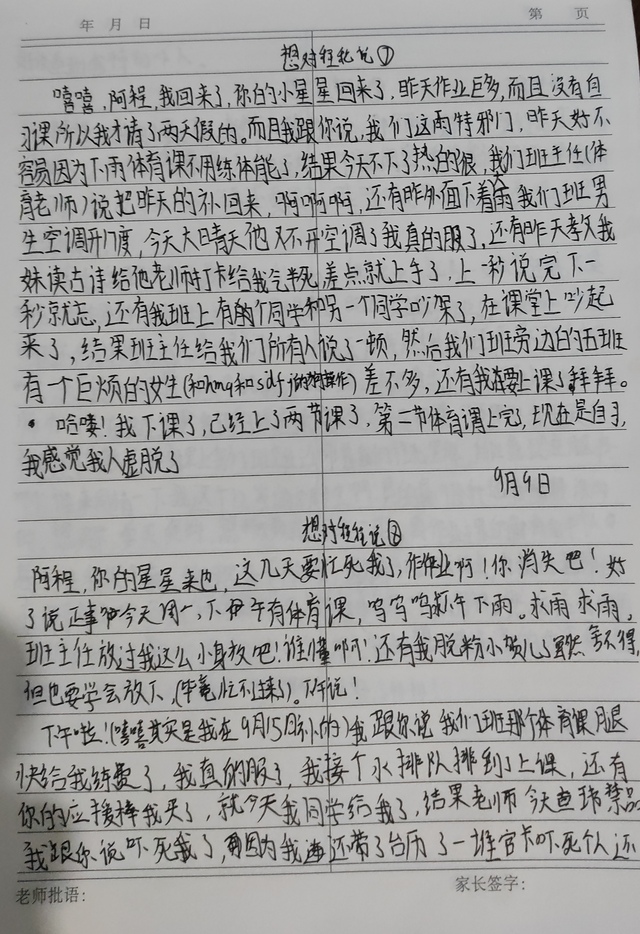 年 月 日 第 页
想对程程说①
嘻嘻,阿程,我回来了,你的小星星回来了,昨天作业巨多,而且没有自
习课所以我才请了两天假的。而且我跟你说,我们这雨特邪门,昨天好不
容易因为下雨体育课不用练体能了,结果今天不下了热的很,我们班主任(体
育老师)说把昨天的补回来,啊啊啊,还有昨外面下着雨我们班男
生空调开度,今天大晴天他又不开空调了我真的服了,还有昨天教我
妹读古诗给他老师打卡给我气半死差点就上手了,上一秒说完下一
秒就忘,还有我班上有的个同学和另一个同学吵架了,在课堂上吵起
来了,结果班主任给我们所有人说了一顿,然后我们班旁边的五班
有一个巨烦的女生(和hmg和sjdf)差不多,还有我要上课了拜拜。
哈喽!我下课了,已经上了两节课了,第二节体育课上完了,现在是自习,
我感觉我人虚脱了
9月9日
想对程程说②
阿程,你的星星来也,这几天要忙死我了,作业啊!你消失吧!好
了说正事今天周一,下午有体育课,呜呜呜下午下雨。求雨求雨,
班主任放过我这么小身板吧!谁懂啊!还有我脱粉小贺儿了虽然舍不得,
但也要学会放下(毕竟忙不过来了)。下午说!
下午啦!(嘻嘻其实是我在9月15日补的)我跟你说我们班那个体育课腿
快给我练费了,我真的服了,我接个水排队排到了上课,还有
你的应援棒我买了,就今天我同学给我了,结果老师今天查违禁品
我跟你说吓死我了,因为我还带了台历了一堆官卡吓死个人还
老师批语: 家长签字: